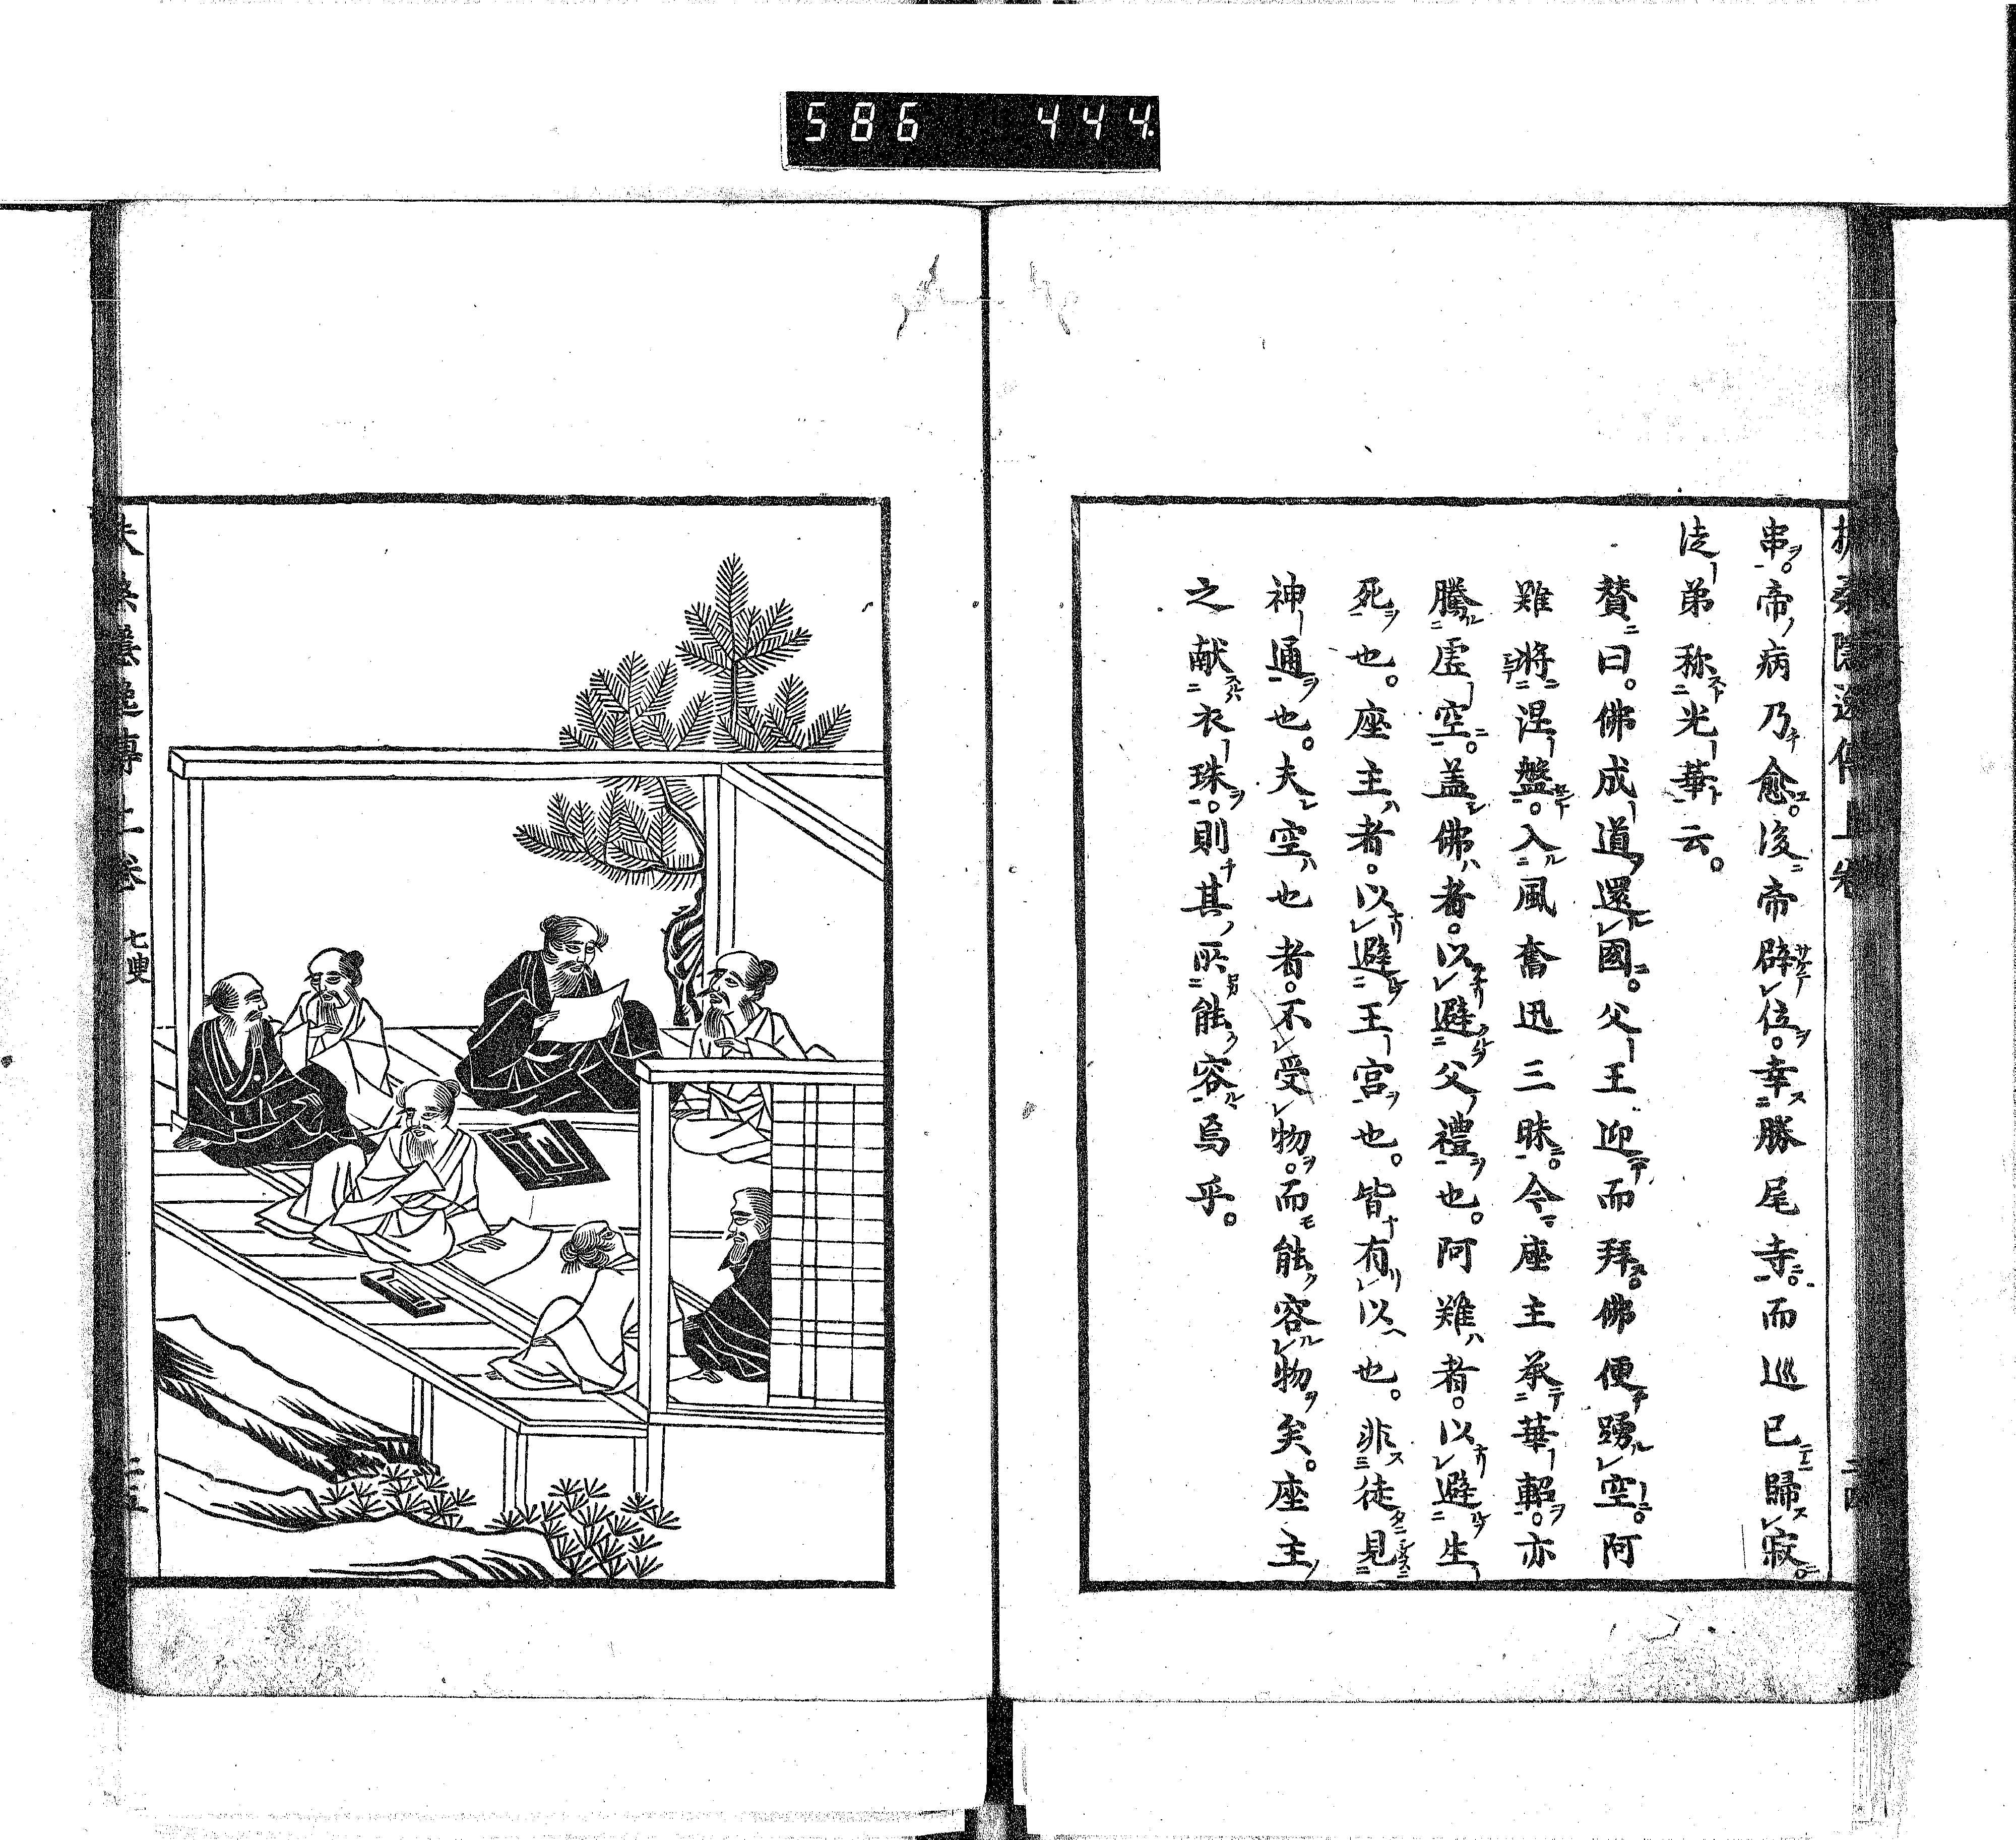 586 444.
扶桑隱逸傳上卷
串。帝病乃愈。後帝辟位。幸勝尾寺。而巡已歸寂。
徒弟称光華云。
賛曰。佛成道還國。父王迎而拜。佛便踴空。阿
難將涅盤。入風奮迅三昧。今座主承華軺。亦
騰虛空。盖佛者。以避父禮也。阿難者。以避生
死也。座主者。以避王宮也。皆有以也。非徒見
神通也。夫空也者。不受物。而能容物矣。座主
之献衣珠。則其所能容焉乎。
扶桑隱逸傳上卷
七叟